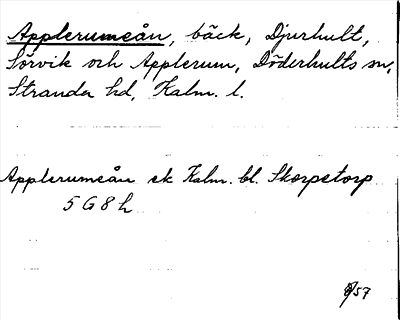 Applerumeån, bäck, Djurhult,
Sörvik och Applerum, Döderhults sn,
Stranda hd, Kalm. l.
Applerumeån ek Kalm. bl. Skorpetorp
5 G 8 h
/57